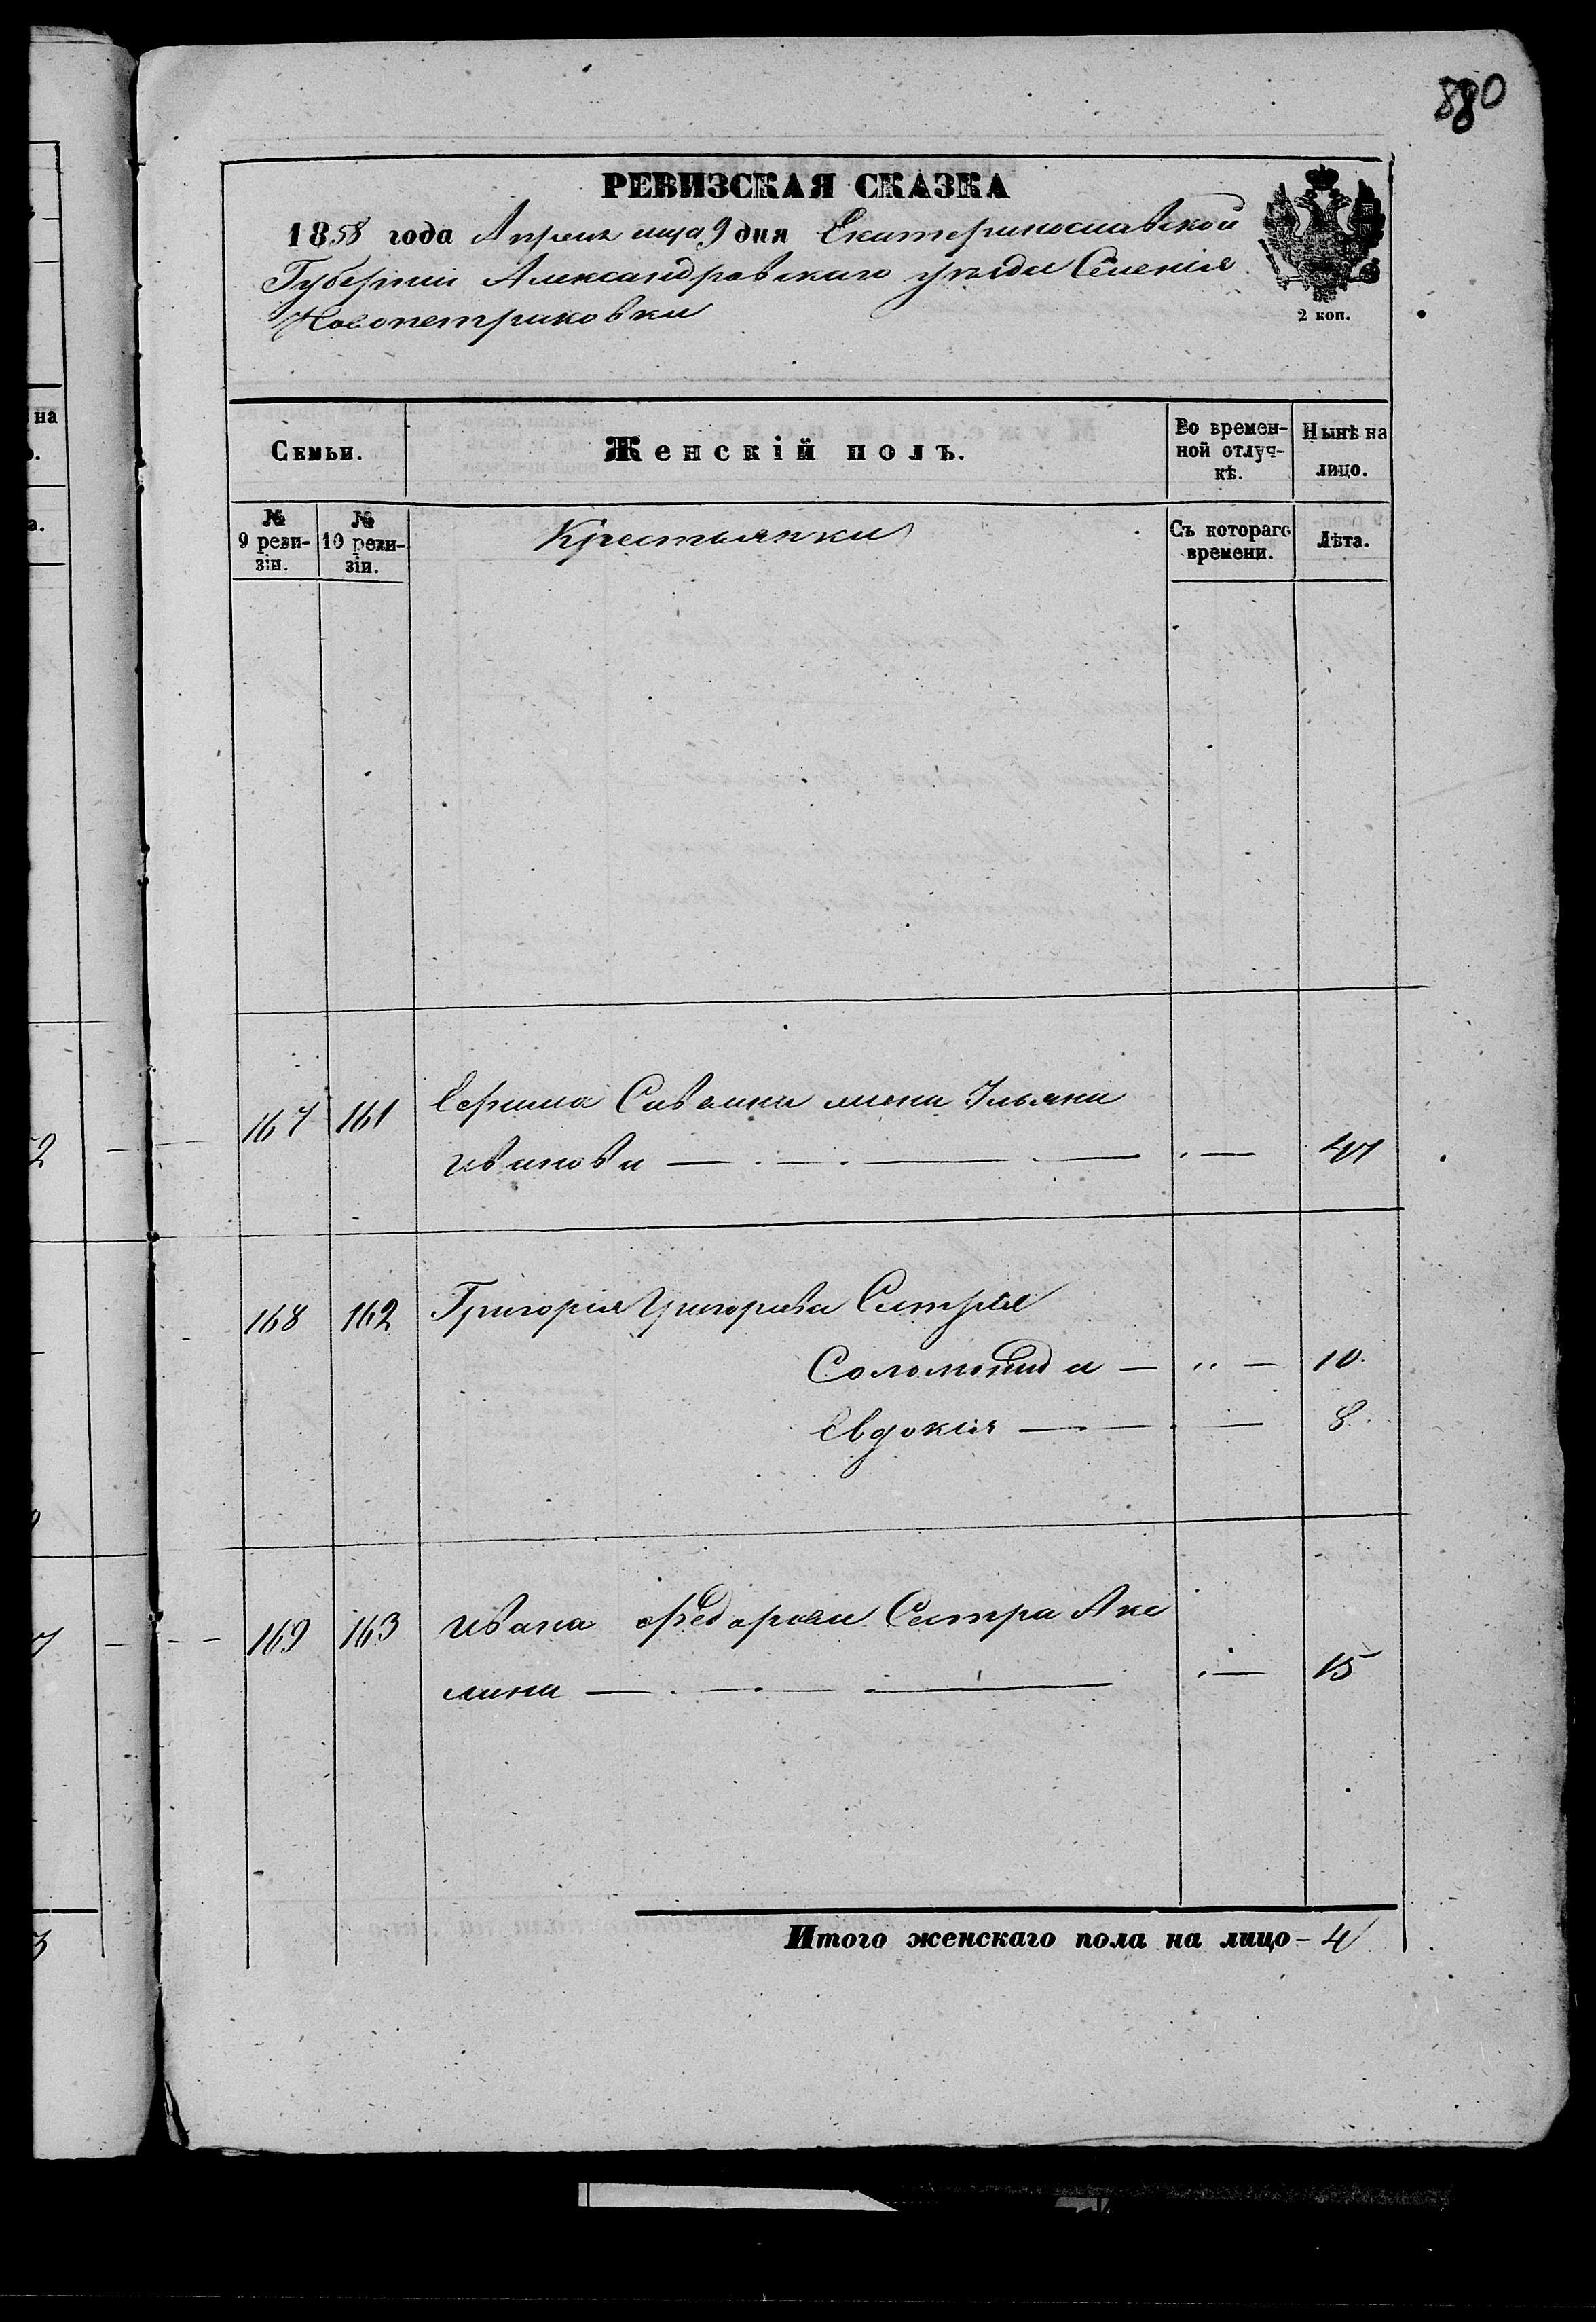 880
РЕВИЗСКАЯ СКАЗКА
1858 года Апреля мца 9 дня Екатеринославской
Губернии Александровскаго уѣзда Селенія
Новопетриковки
2 коп.
Семьи.
Женскій полъ.
Во времен-
ной отлуч-
кѣ.
Нынѣ на
лицо.
№
9 реви-
зіи.
№
10 реви-
зіи.
Крестьянки
Съ котораго
времени.
Лѣта.
167 161 Савелия жена Ульяна
Иванова — 47
168 162 Григорія Григорьева Сестры
Соломонида — „ — 10.
Евдокія — 8.
169 163 Ивана Федорова Сестра Аке
лина — 15
Итого женскаго пола на лицо – 4